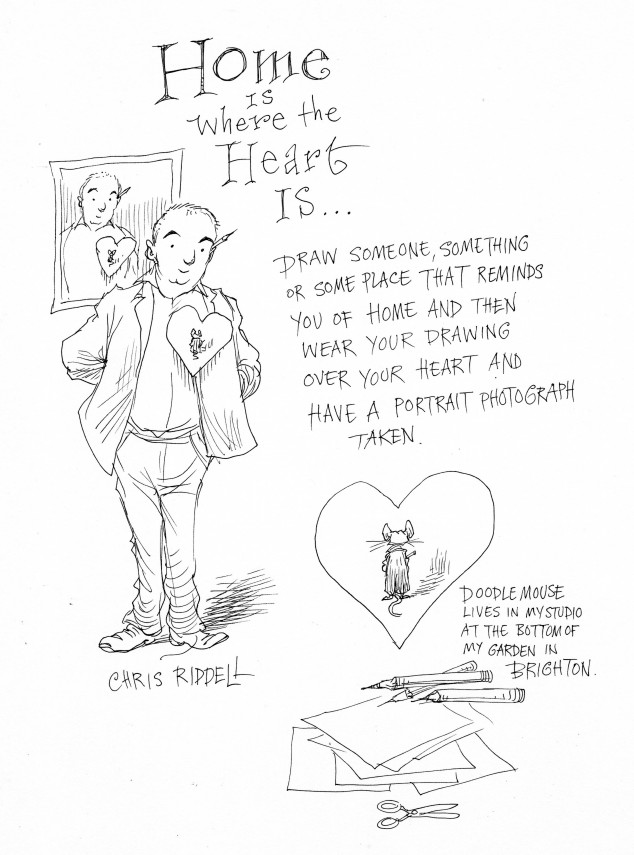 Home
IS
Where the
Heart
IS...
DRAW SOMEONE, SOMETHING
OR SOME PLACE THAT REMINDS
YOU OF HOME AND THEN
WEAR YOUR DRAWING
OVER YOUR HEART AND
HAVE A PORTRAIT PHOTOGRAPH
TAKEN.
DOODLEMOUSE
LIVES IN MY STUDIO
AT THE BOTTOM OF
MY GARDEN IN
BRIGHTON.
CHRIS RIDDELL